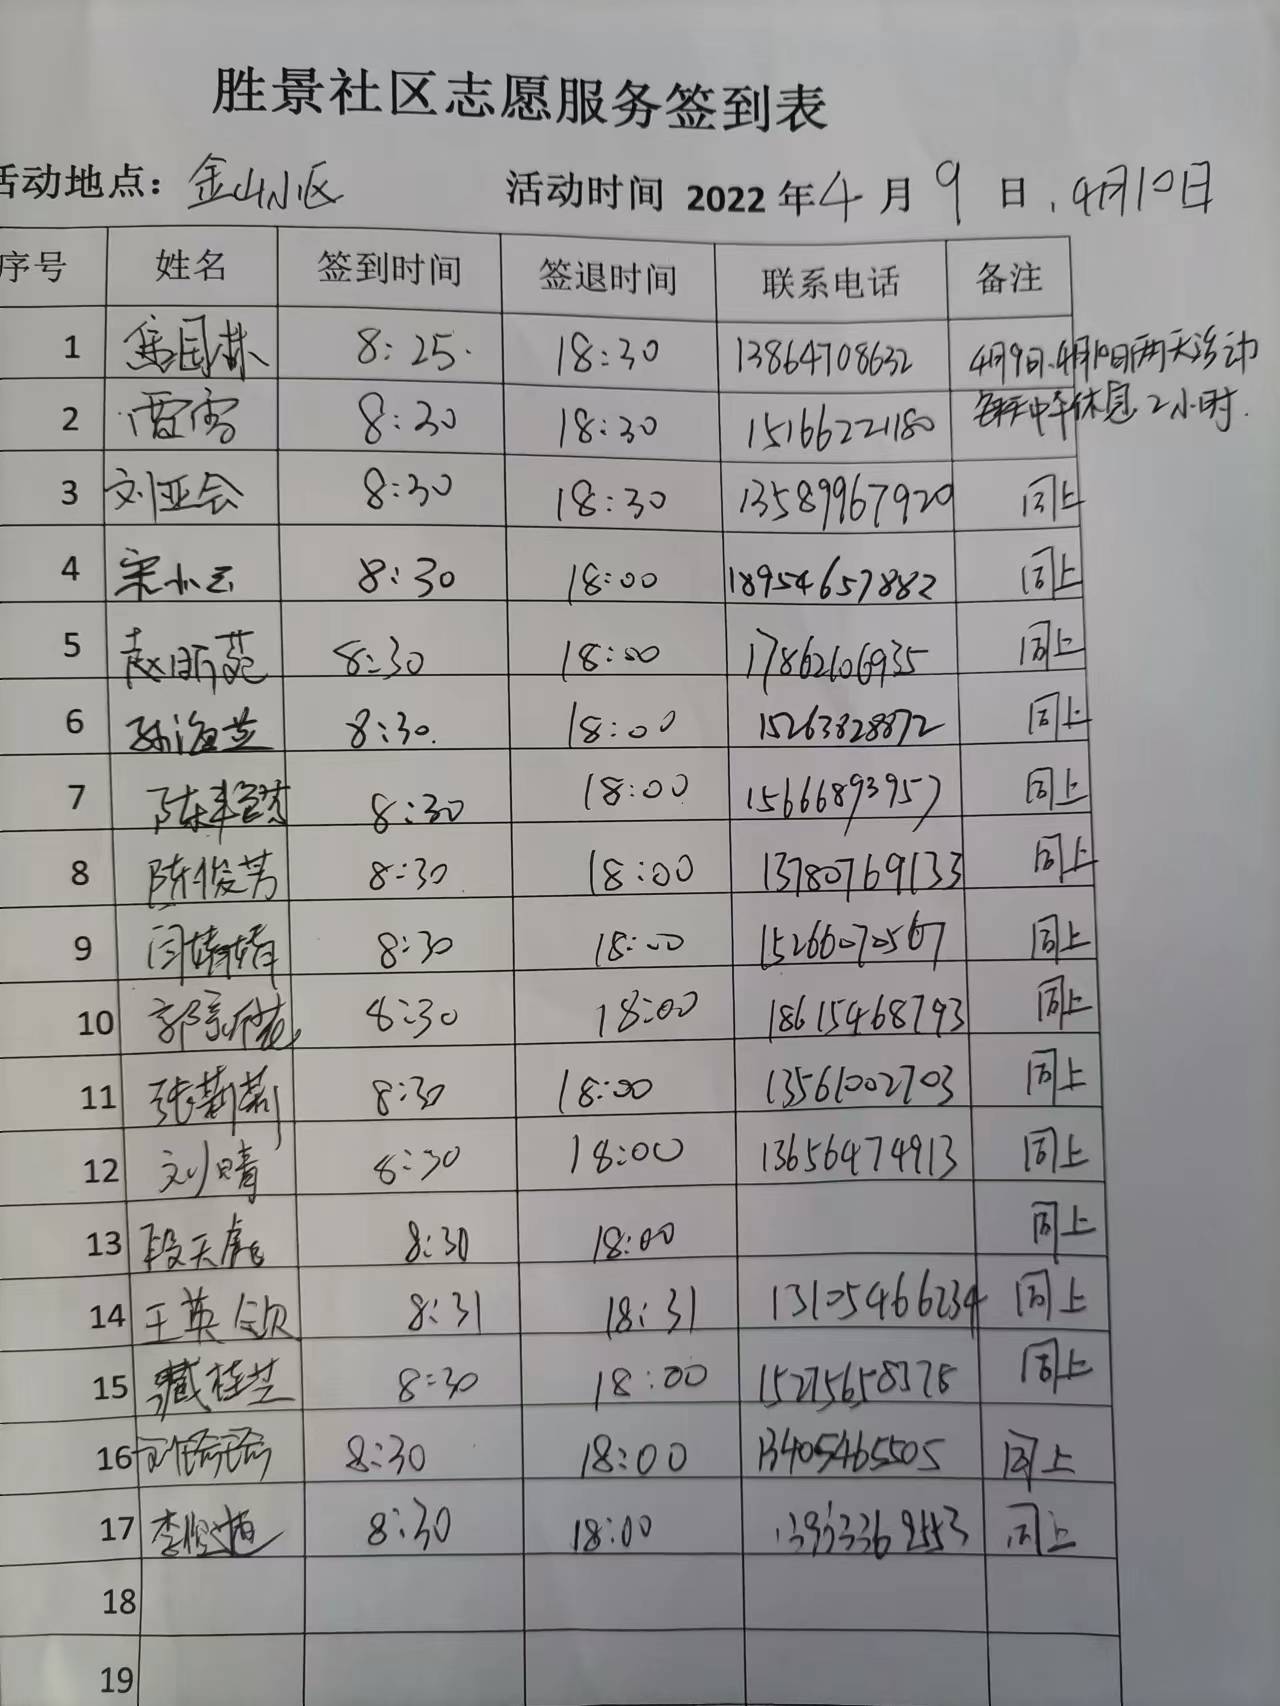 胜景社区志愿服务签到表
活动地点：金山小区 活动时间 2022年4月9日、4月10日
序号 姓名 签到时间 签退时间 联系电话 备注
1 8:25 18:30 13864708632 4月9日、4月10日两天活动
每天中午休息2小时.
2 雷雪 8:30 18:30 15166221180
3 刘亚会 8:30 18:30 13589967920 同上
4 宋小云 8:30 18:00 18954657882 同上
5 赵昕苑 8:30 18:00 17862606935 同上
6 孙海芝 8:30 18:00 15263828872 同上
7 8:30 18:00 15666893957 同上
8 陈俊芳 8:30 18:00 13780769133 同上
9 闫婧婧 8:30 18:00 15266070567 同上
10 8:30 18:00 18615468793 同上
11 张莉莉 8:30 18:00 13561002703 同上
12 刘晴 8:30 18:00 13656474913 同上
13 段天彪 8:30 18:00 同上
14 王英欣 8:31 18:31 13105466234 同上
15 臧桂芝 8:30 18:00 15275658378 同上
16 8:30 18:00 13405465505 同上
17 8:30 18:00 同上
18
19